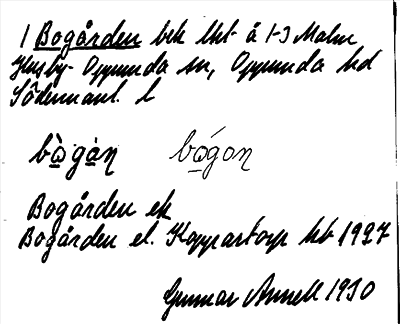 1 Bogården bek lht å 1-3 Malm
Husby-Oppunda sn, Oppunda hd
Södermanl. l
bo̱gån bo̱gon
Bogården ek
Bogården el. Koppartorp hb 1927
Gunnar Annell 1930